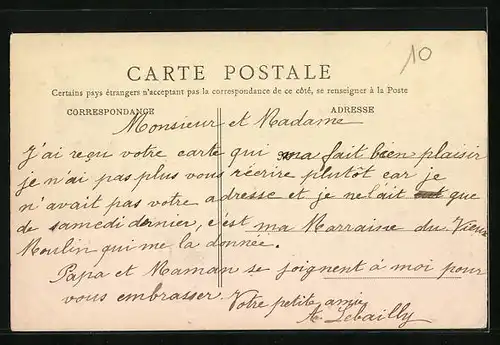 10
CARTE POSTALE
Certains pays étrangers n'acceptant pas la correspondance de ce côté, se renseigner à la Poste
CORRESPONDANCE
ADRESSE
Monsieur et Madame
J'ai reçu votre carte qui ma fait bien plaisir
je n'ai pas plus vous récrire plutôt car je
n'avait pas votre adresse et je ne l'ait que
de samedi dernier, c'est ma Marraine du Vieux
Moulin qui me la donnée.
Papa et Maman se joignent à moi pour
vous embrasser
Votre petite amie
A. Lebailly